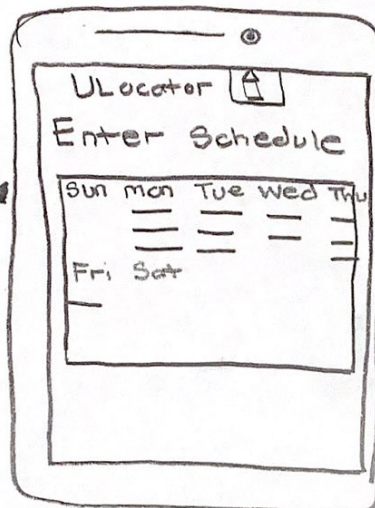 ULocator
Enter Schedule
Sun mon Tue wed Thu
Fri Sat